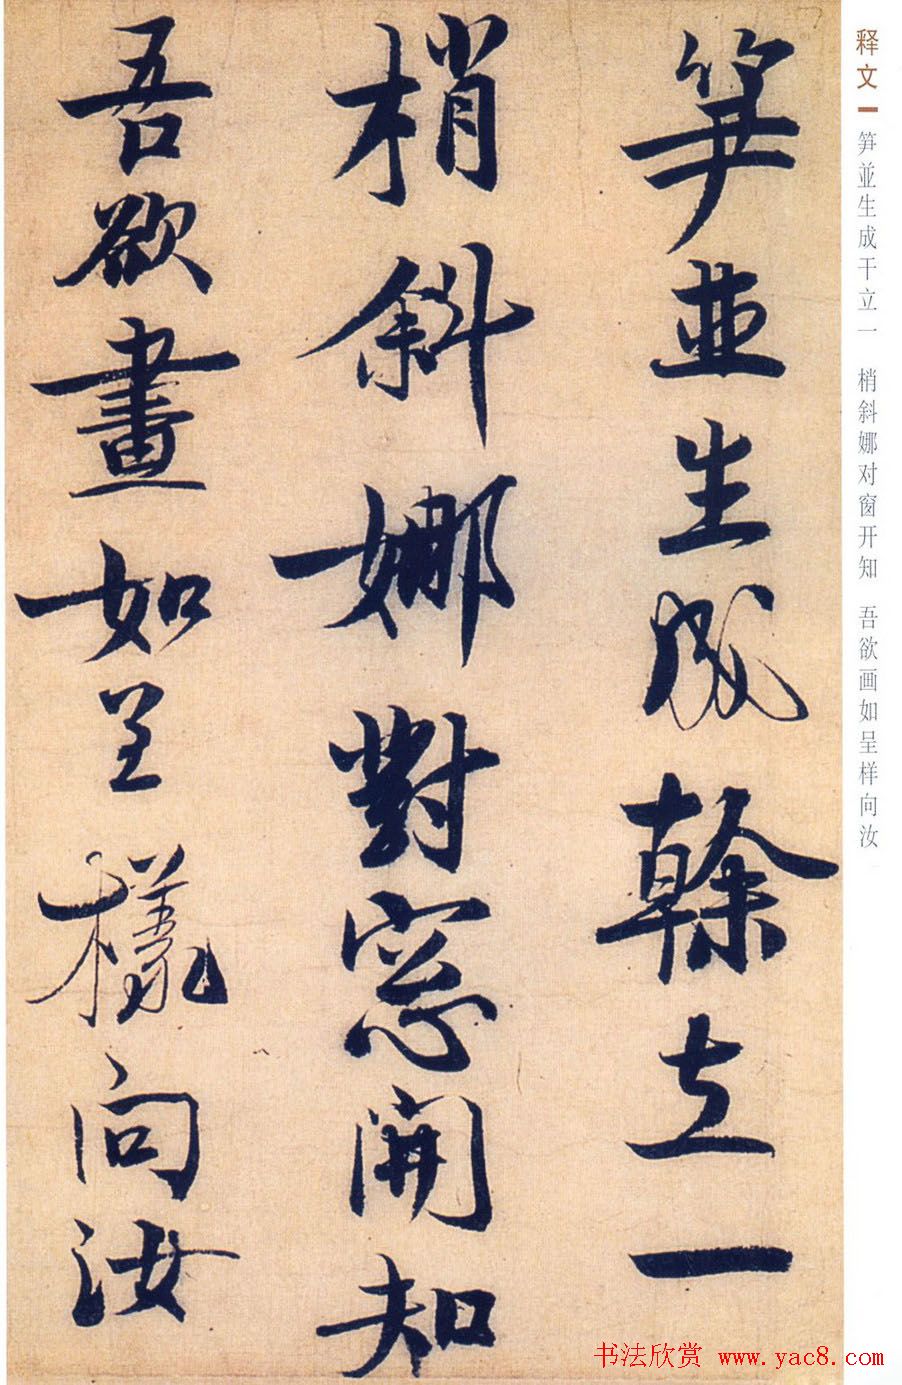 笋並生成榦立一
梢斜娜對窓開知
吾欲畫如呈樣向汝
释文
笋並生成干立一 梢斜娜对窗开知 吾欲画如呈样向汝
书法欣赏 www.yac8.com